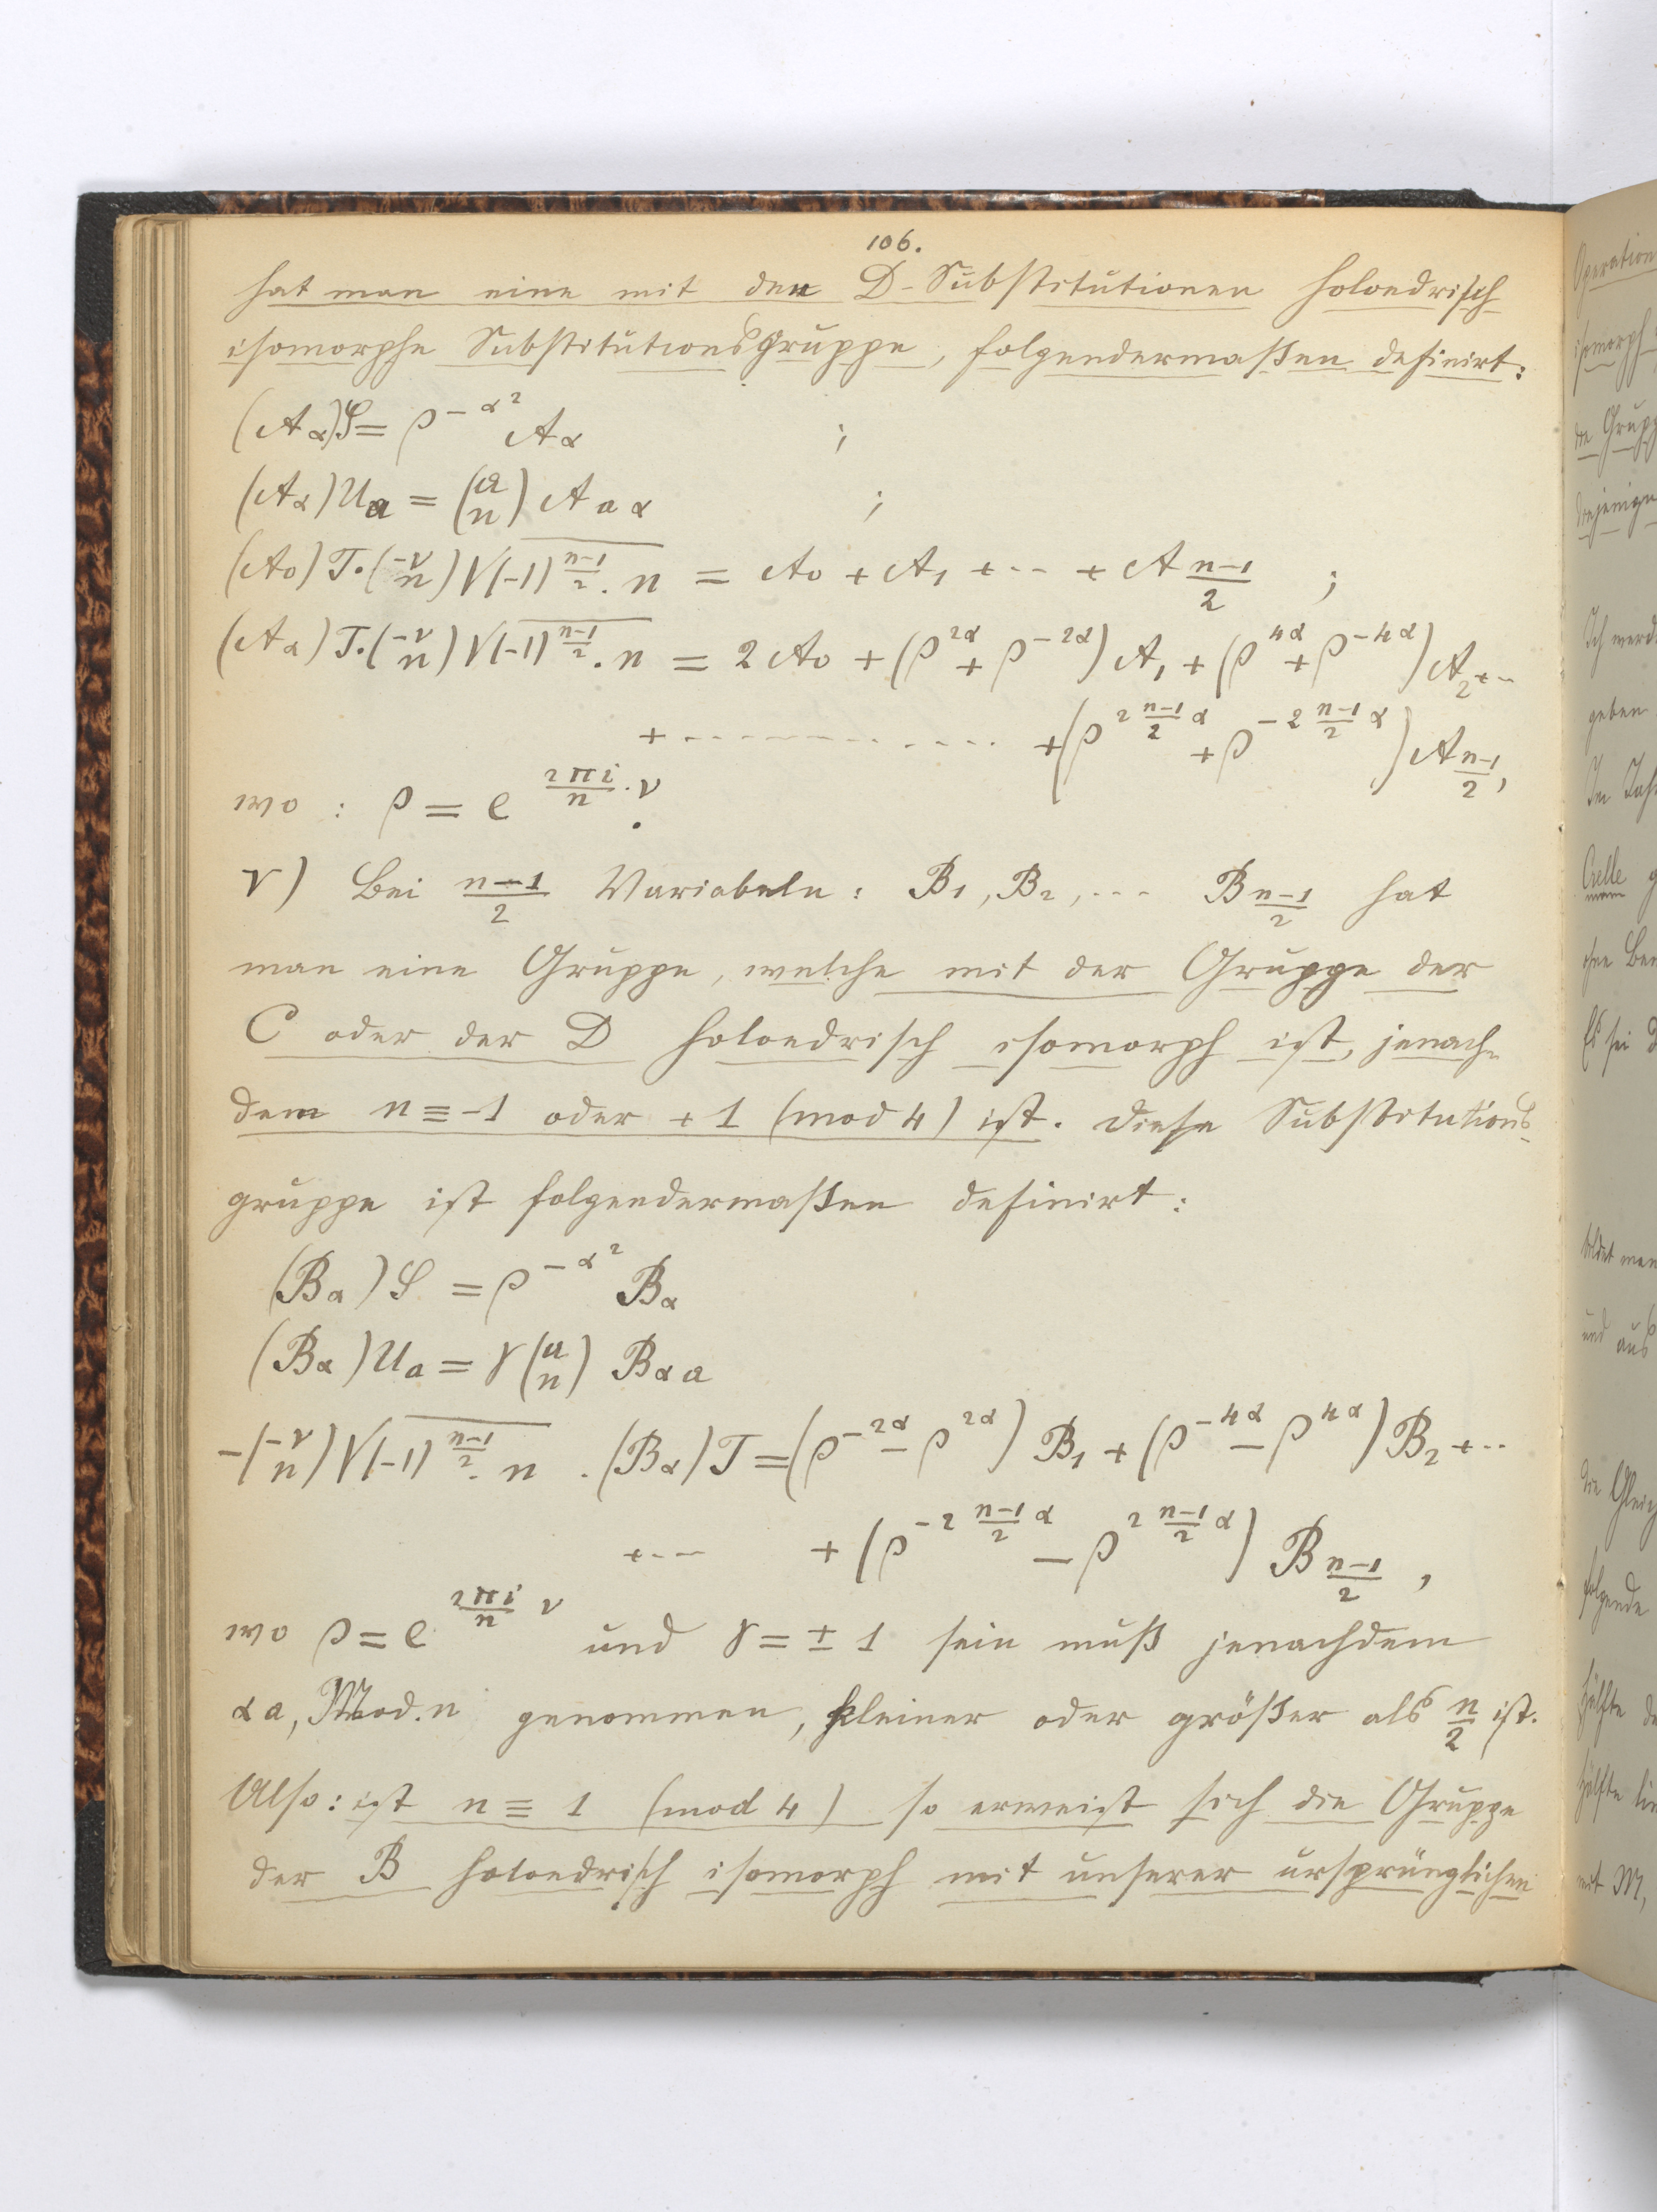 106.
hat man eine mit den D-Substitutionen holoedrisch
isomorphe Substitutionsgruppe, folgendermaßen definirt:
(A_α)S = ρ^{-α²} A_α ;
(A_α)U_a = (a/n) A_{aα} ;
(A_0) T·(-ν/n) √((-1)^{(n-1)/2}·n) = A_0 + A_1 + ... + A_{(n-1)/2} ;
(A_α) T·(-ν/n) √((-1)^{(n-1)/2}·n) = 2A_0 + (ρ^{2α} + ρ^{-2α}) A_1 + (ρ^{4α} + ρ^{-4α}) A_2 + ...
+ ............ + (ρ^{2 (n-1)/2 α} + ρ^{-2 (n-1)/2 α}) A_{(n-1)/2},
wo : ρ = e^{2πi/n · ν}.
V) Bei (n-1)/2 Variabeln: B_1, B_2, ... B_{(n-1)/2} hat
man eine Gruppe, welche mit der Gruppe der
C oder der D holoedrisch isomorph ist, jenach-
dem n ≡ -1 oder +1 (mod 4) ist. Diese Substitutions-
gruppe ist folgendermaßen definirt:
(B_α)S = ρ^{-α²} B_α
(B_α)U_a = γ (a/n) B_{αa}
-(-ν/n) √((-1)^{(n-1)/2}·n) · (B_α)T = (ρ^{-2α} - ρ^{2α}) B_1 + (ρ^{-4α} - ρ^{4α}) B_2 + ...
+ ... + (ρ^{-2 (n-1)/2 α} - ρ^{2 (n-1)/2 α}) B_{(n-1)/2},
wo ρ = e^{2πi/n ν} und γ = ± 1 sein muß jenachdem
αa, Mod. n genommen, kleiner oder größer als n/2 ist.
Also: ist n ≡ 1 (mod 4) so erweist sich die Gruppe
der B holoedrisch isomorph mit unserer ursprünglichen
Operation
isomorph
die Grupp
diejenige
Ich werd
geben
Im Jah
Crelle g
Es sei D
bildet man
und aus
die Gleich
folgende
Hälfte de
Hälfte lin
mit M,